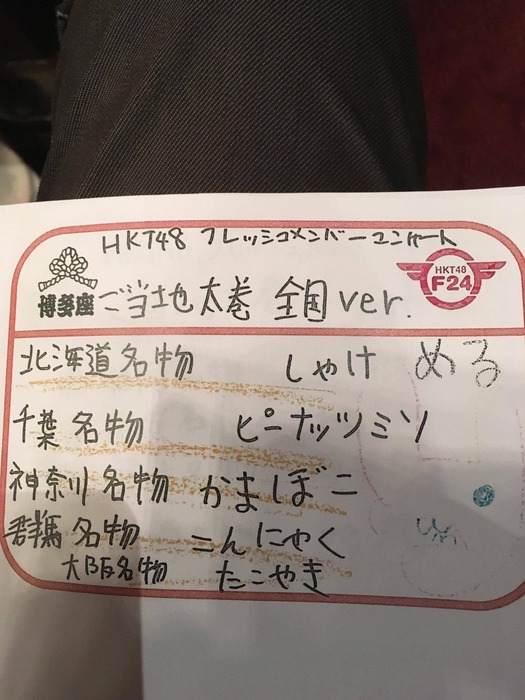 HKT48 フレッシュメンバーコンサート
博多座
ご当地太巻 全国 ver.
HKT48
F24
北海道名物 しゃけ める
千葉名物 ピーナッツミソ
神奈川名物 かまぼこ
群馬名物 こんにゃく
大阪名物 たこやき